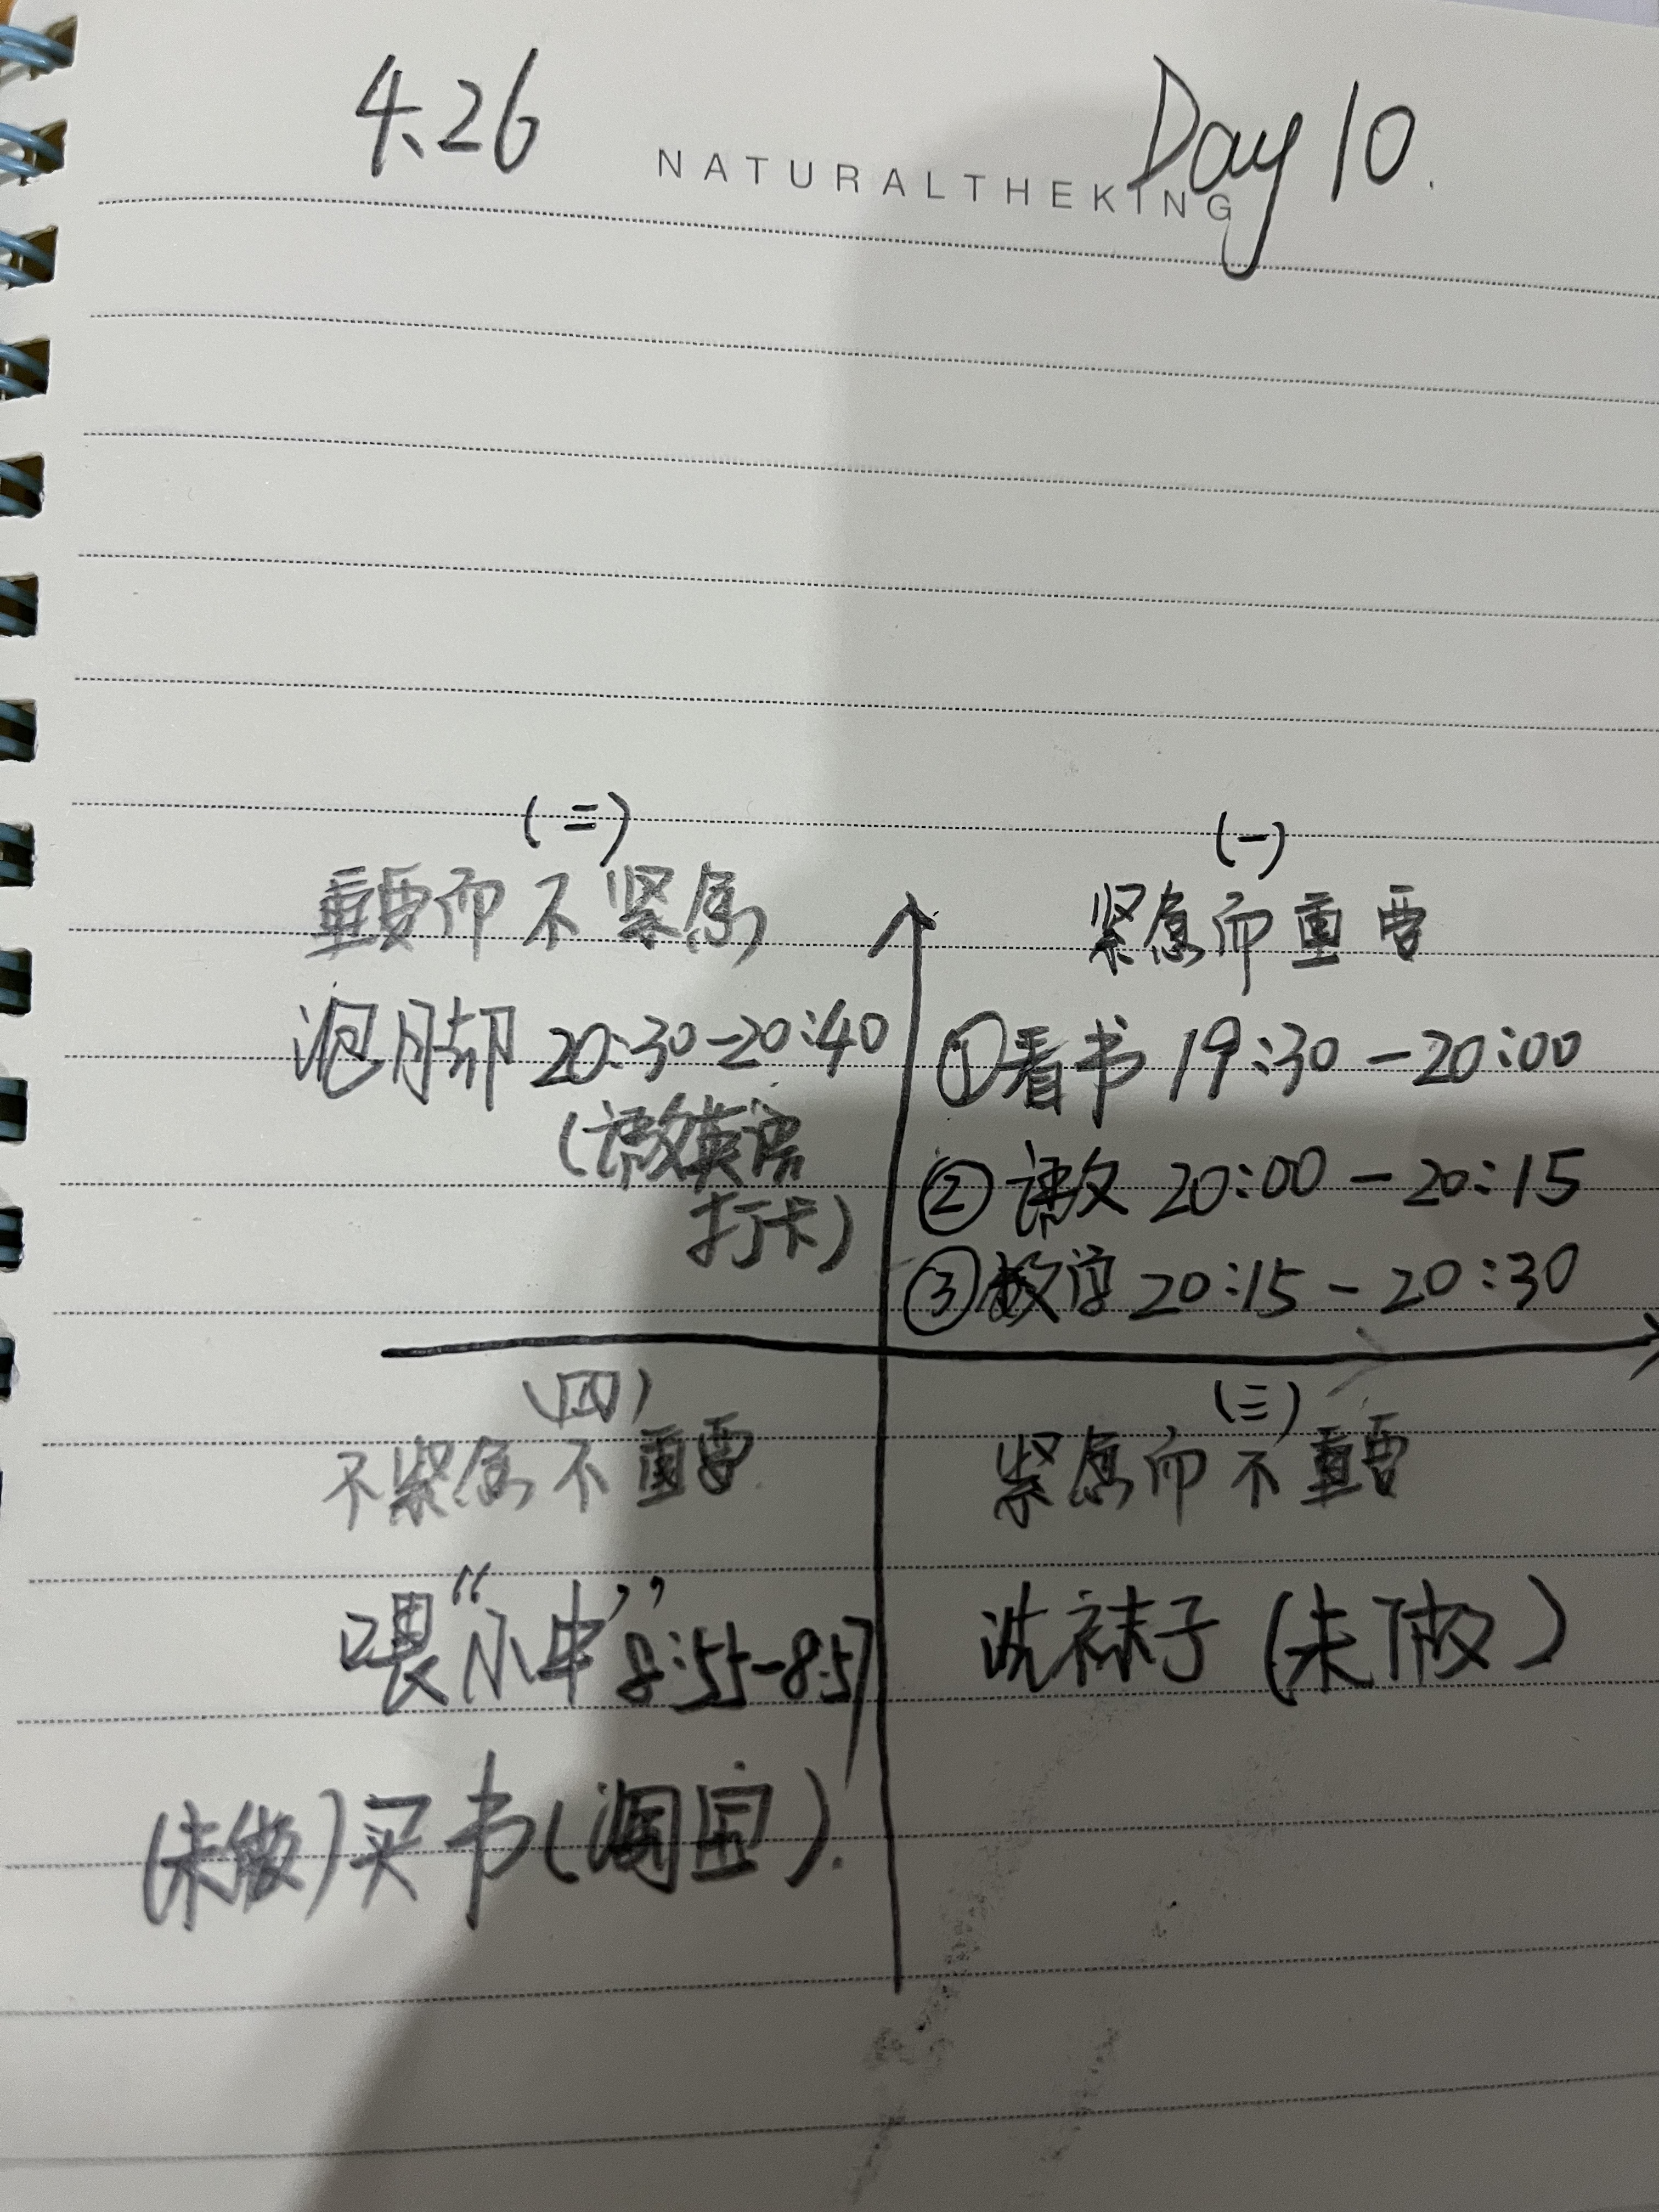 4.26
Day 10.
NATURALTHEKING
(二)
重要而不紧急
泡脚 20:30-20:40
(语文英语
打卡)
(一)
紧急而重要
①看书 19:30-20:00
②语文 20:00-20:15
③数学 20:15-20:30
(四)
不紧急不重要
喂“小中”8:55-8:57
(未做)买书(淘宝).
(三)
紧急而不重要
洗袜子(未做)